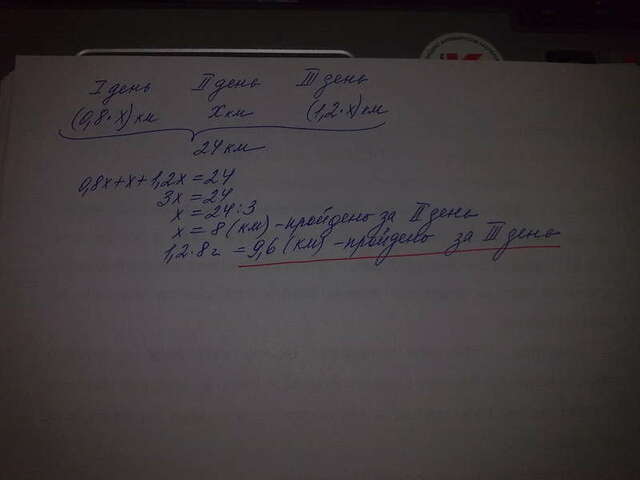 I день II день III день
(0,8·x) км x км (1,2·x) км
24 км
0,8x+x+1,2x=24
3x=24
x=24:3
x=8 (км) - пройдено за II день
1,2·8 = 9,6 (км) - пройдено за III день